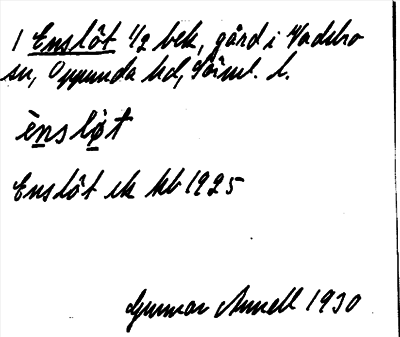 1 Enslöt 1/2 bek, gård i Vadsbro
sn, Oppunda hd, Söml. l.
ènsløt
Enslöt ek kb 1925
Gunnar Annell 1930